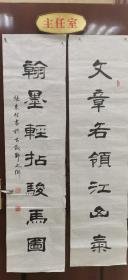 主任室
文章若領江山氣
翰墨輕拈駿馬圖